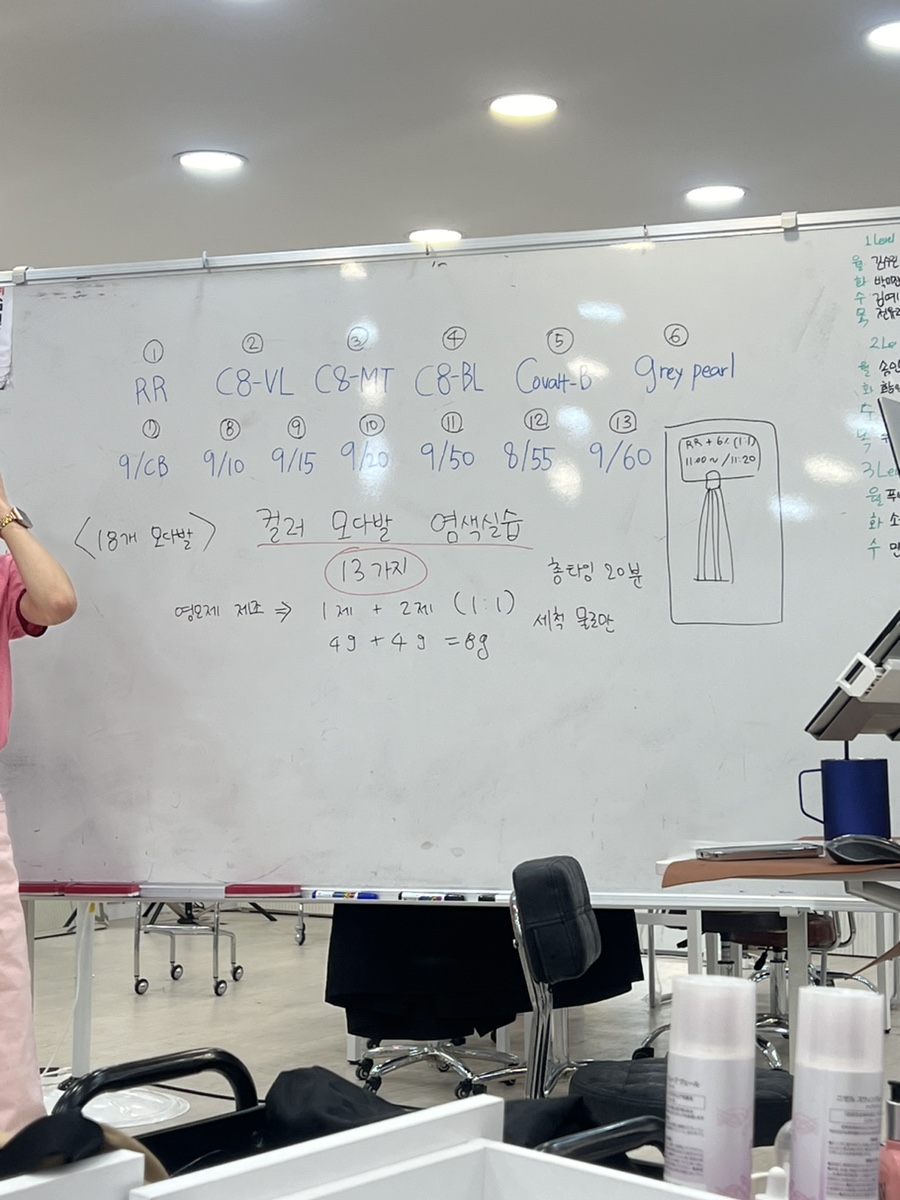 ① ② ③ ④ ⑤ ⑥
RR C8-VL C8-MT C8-BL Covalt-B Grey pearl
⑦ ⑧ ⑨ ⑩ ⑪ ⑫ ⑬
9/CB 9/10 9/15 9/20 9/50 8/55 9/60
<18개 모다발> 컬러 모다발 염색실습
13가지
염모제 제조 ⇒ 1제 + 2제 (1:1)
4g + 4g = 8g
총타임 20분
세척 물로만
RR + 6% (1:1)
11:00~/11:20
1 Level
월
화
수
목
2Le
월
화
수
3Le
월
화
수